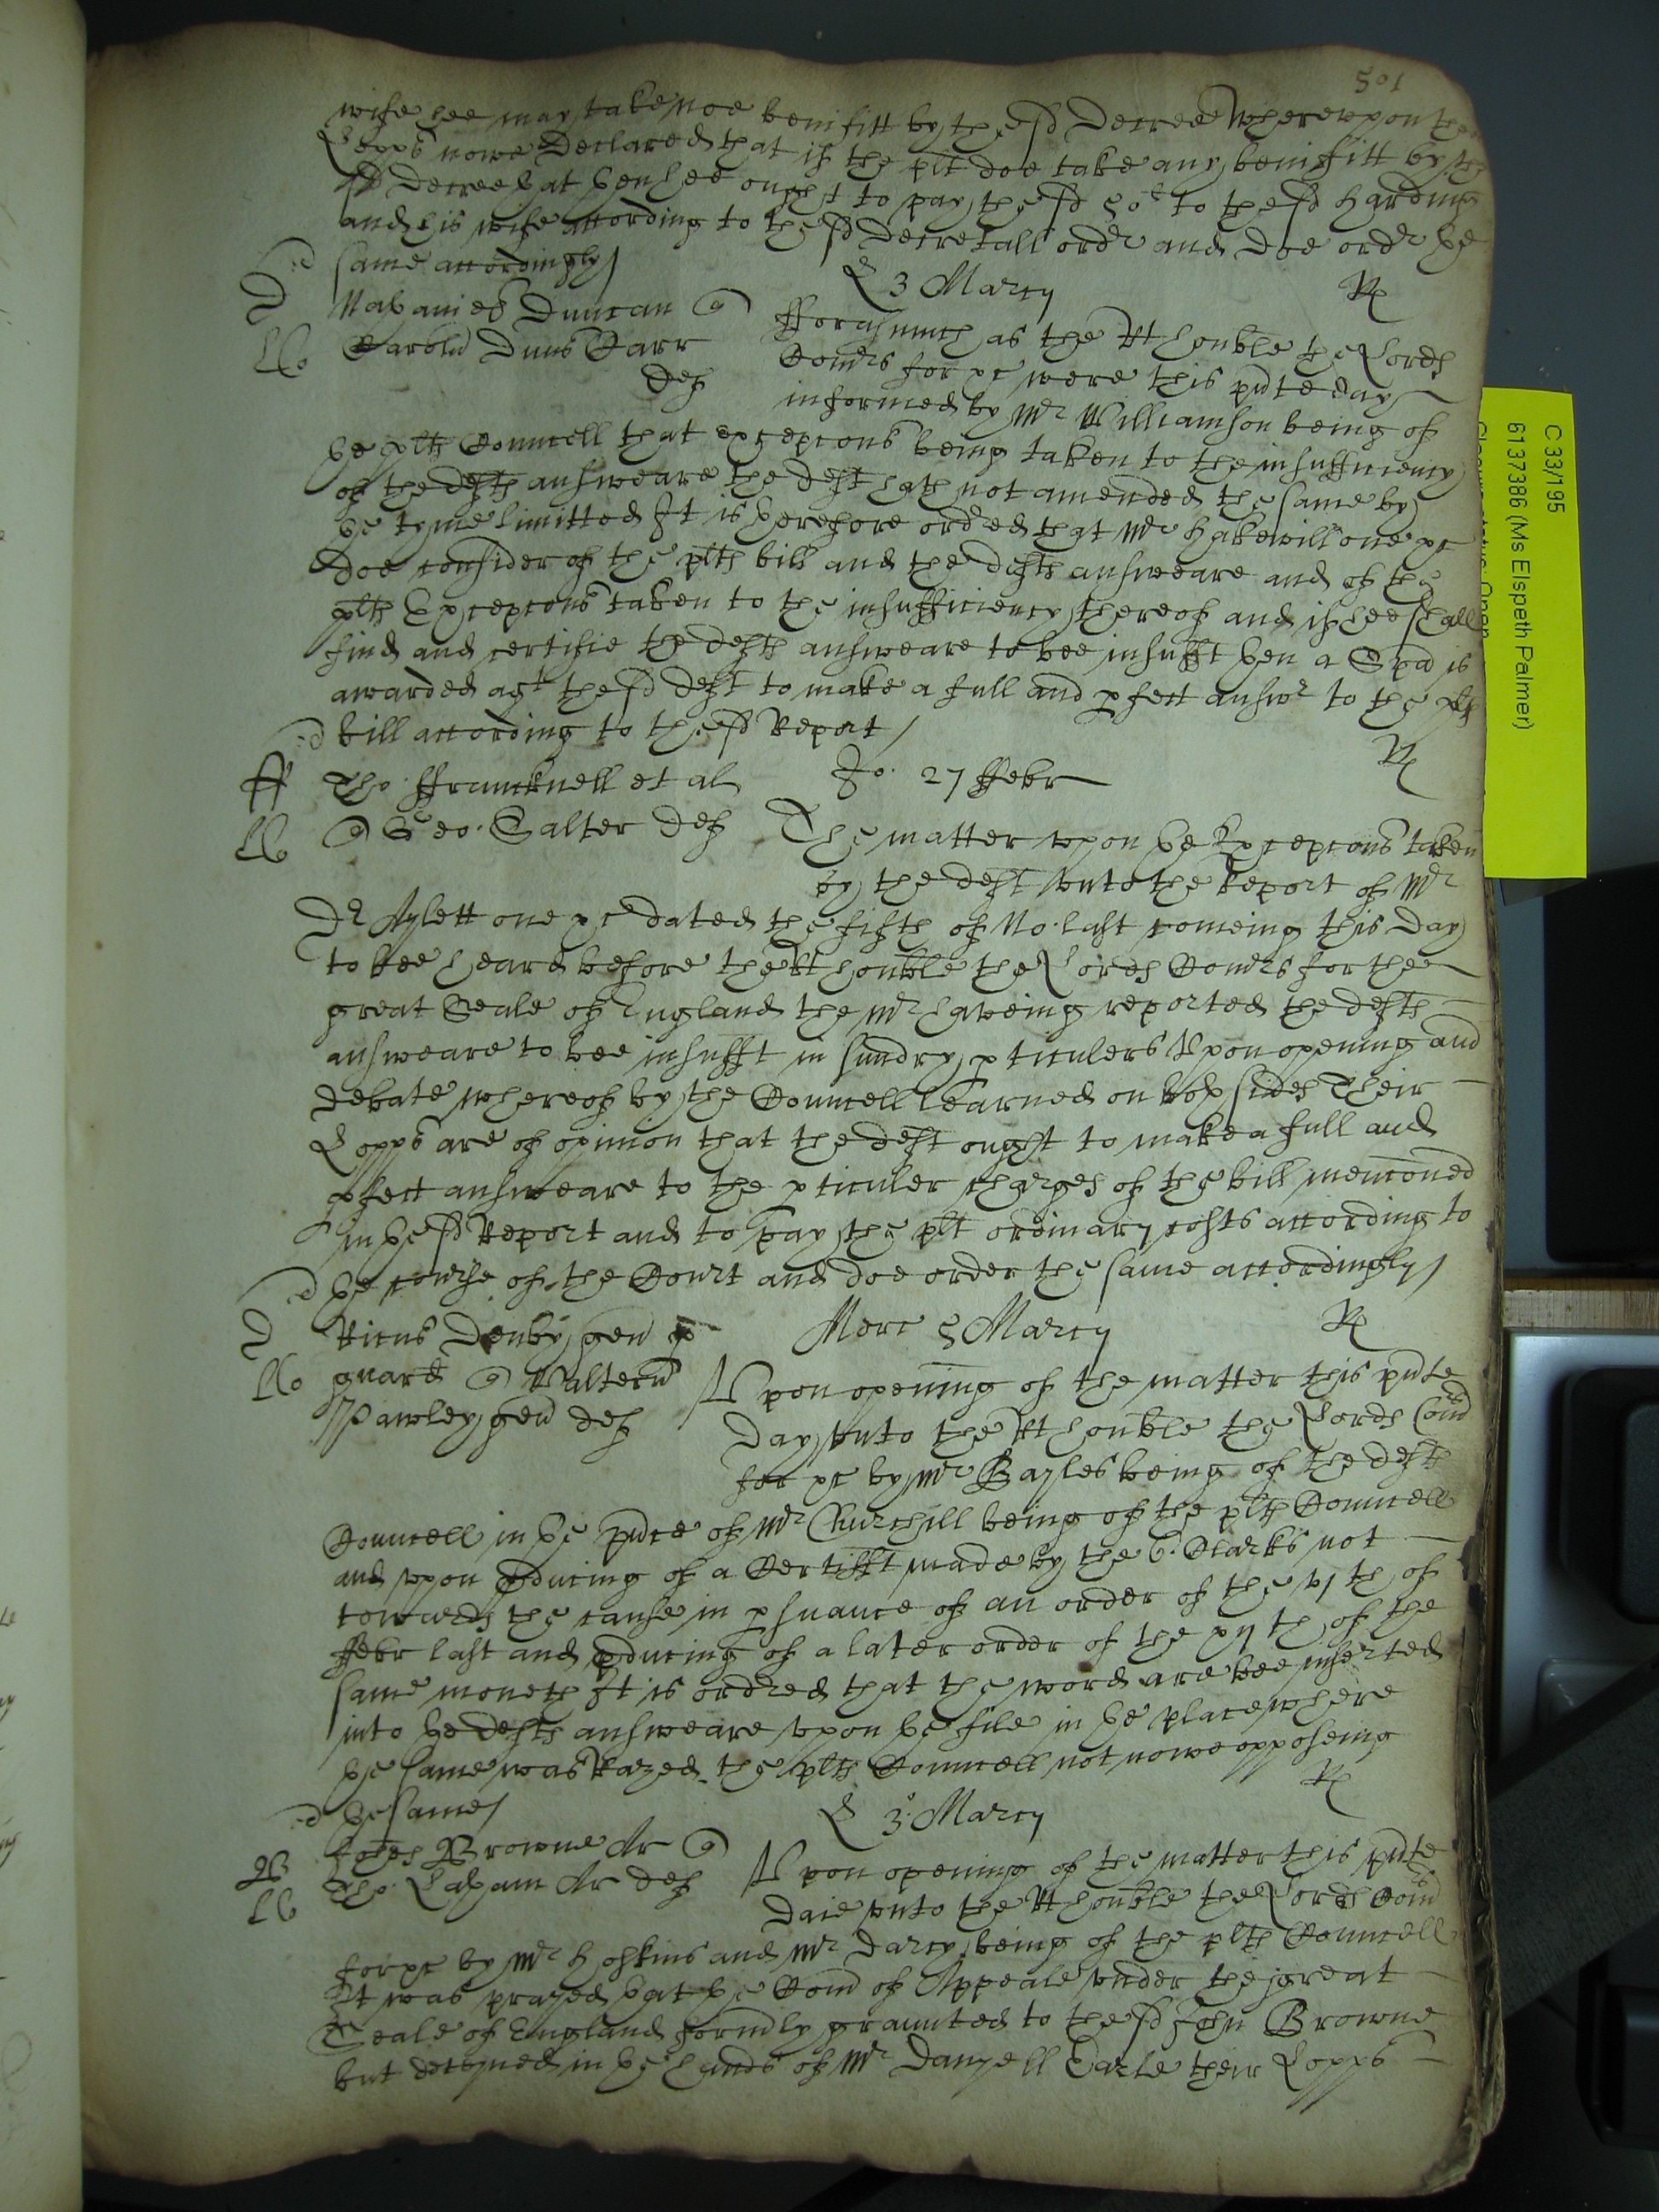 501
wife hee may take noe benifitt by the sd Decree Wherevpon the
Lopps nowe Declared that if the plt doe take any benifitt by the
sd Decree yat yen hee ought to pay the sd 50l to the sd Harding
and his wife according to the sd Decretall ordr and doe ordr ye
same accordingly
L 3 Marcij
D Nathaniel Duncan
Llo Duns Carr
Deft
Rx
fforasmuch as the Rt honble the Lords
Comrs for xc were this pnte day
informed by Mr Williamson being of
ye plts Councell that excepcons being taken to the insufficiency
of the defts answeare the deft hath not amended the same by
ye tyme limitted It is yerefore ordred that Mr Hakewill one xc
doe consider of the plts bill and the defts answeare and of the
plts Excepcons taken to the insufficiency thereof and if hee shall
find and certifie the defts answeare to bee insufft yen a Spa is
awarded agt the sd deft to make a full and pfect answr to the plts
bill according to the sd Report
ff Tho. ffrancknell et al
Jo. 27 ffebr
Rx
Geo. Salter Def
The matter vpon ye Excepcons taken
by the deft vnto the Report of Mr
Dr Aylett one xc dated the fifth of No. last comeing this day
to bee heard before the Rt honble the Lords Comrs for the
great Seale of England the Mr haveing reported the defts
answeare to bee insufft in sundry pticulers Vpon opening and
debate whereof by the Councell learned on both sides Their
Lopps are of opinion that the deft ought to make a full and
pfect answeare to the pticuler charges of the bill menconed
in ye sd Report and to pay the plt ordinary costs according to
ye course of the Court and doe order the same accordingly
D Ricus Denby gen p
Merc 5 Marcij
Rx
Llo guard Walterm
Pawley gen def
Vpon opening of the matter this pnte
day vnto the Rt honble the Lords Com
for xc by Mr Bayles being of the defts
Councell in ye pnce of Mr Churchill being of the plts Councell
and vpon pducing of a Certifft made by the 6. Clarks not
towards the cause in psuance of an order of the vjth of
ffebr last and pducing of a later order of the xijth of the
same moneth It is ordred that the word are bee inserted
into ye defts answeare vpon ye file in ye place where
ye same was Razed the plts Councell not nowe opposeing
ye same
L 3. Marcij
Rx
B Johes Browne Ar
Tho. Latham Ar def
Vpon opening of the matter this pnte
daie vnto the Rt honble the Lords Com
for xc by Mr Hoskins and Mr Darcy being of the plts Councell
It was prayed yat ye Com of Appeale vnder the great
Seale of England formly graunted to the sd John Browne
but deteyned in ye hands of Mr Danyell Earle their Lopps
C 33/195
6137386 (Ms Elspeth Palmer)